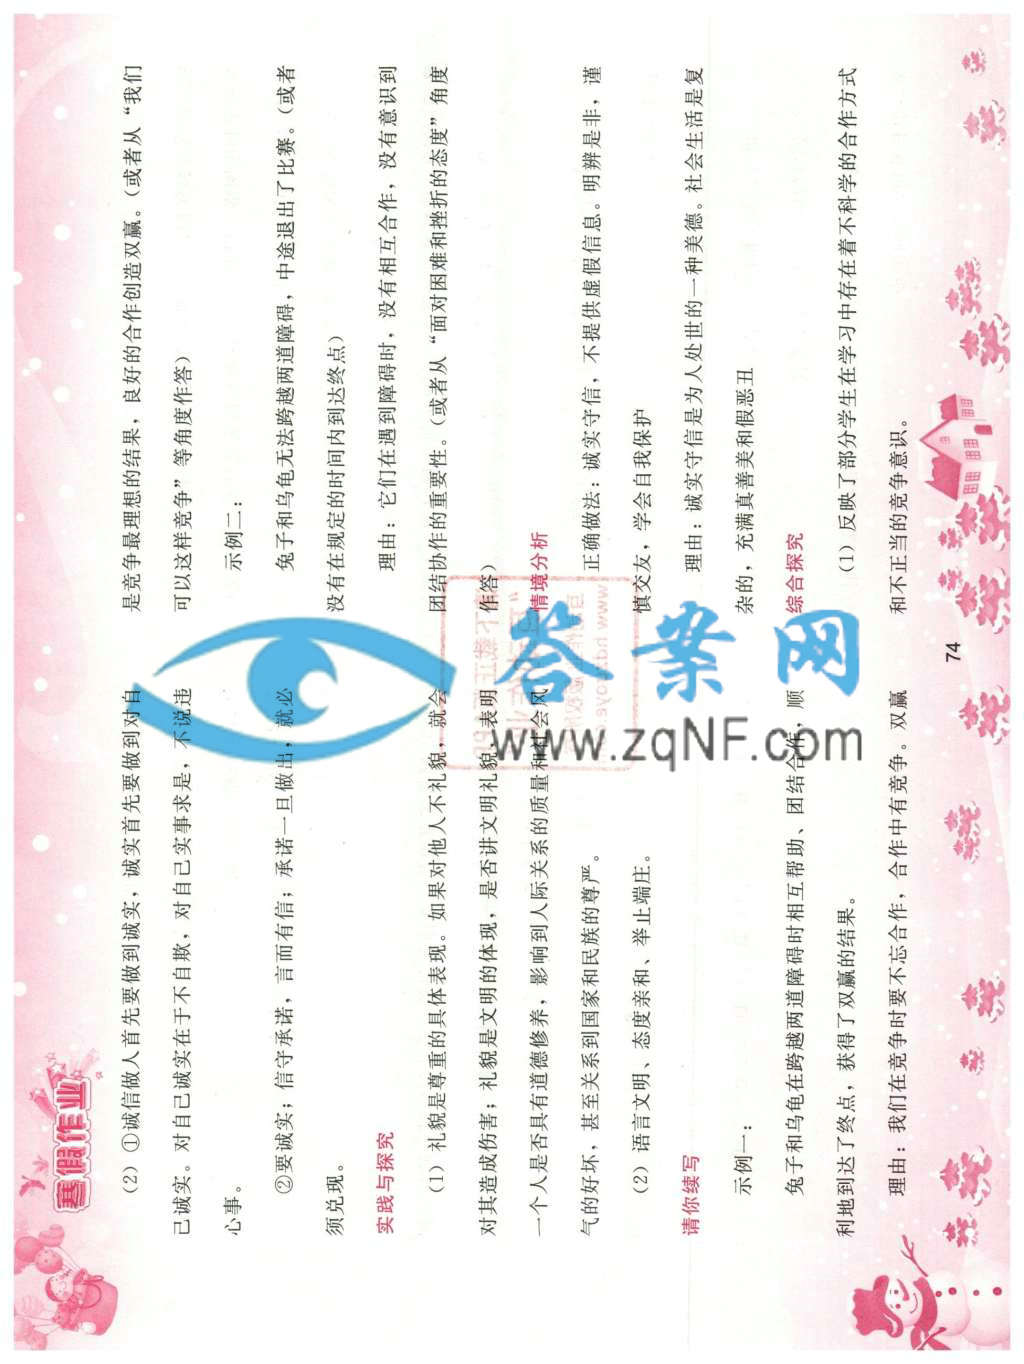 寒假作业
（2）①诚信做人首先要做到诚实，诚实首先要做到对自
己诚实。对自己诚实在于不自欺，对自己实事求是，不说违
心事。
②要诚实；信守承诺，言而有信；承诺一旦做出，就必
须兑现。
实践与探究
（1）礼貌是尊重的具体表现。如果对他人不礼貌，就会
对其造成伤害；礼貌是文明的体现，是否讲文明礼貌，表明
一个人是否具有道德修养，影响到人际关系的质量和社会风
气的好坏，甚至关系到国家和民族的尊严。
（2）语言文明、态度亲和、举止端庄。
请你续写
示例一：
兔子和乌龟在跨越两道障碍时相互帮助、团结合作，顺
利地到达了终点，获得了双赢的结果。
理由：我们在竞争时要不忘合作，合作中有竞争。双赢
是竞争最理想的结果，良好的合作创造双赢。（或者从“我们
可以这样竞争”等角度作答）
示例二：
兔子和乌龟无法跨越两道障碍，中途退出了比赛。（或者
没有在规定的时间内到达终点）
理由：它们在遇到障碍时，没有相互合作，没有意识到
团结协作的重要性。（或者从“面对困难和挫折的态度”角度
作答）
情境分析
正确做法：诚实守信，不提供虚假信息。明辨是非，谨
慎交友，学会自我保护
理由：诚实守信是为人处世的一种美德。社会生活是复
杂的，充满真善美和假恶丑
综合探究
（1）反映了部分学生在学习中存在着不科学的合作方式
和不正当的竞争意识。
74
答案网
www.zqNF.com